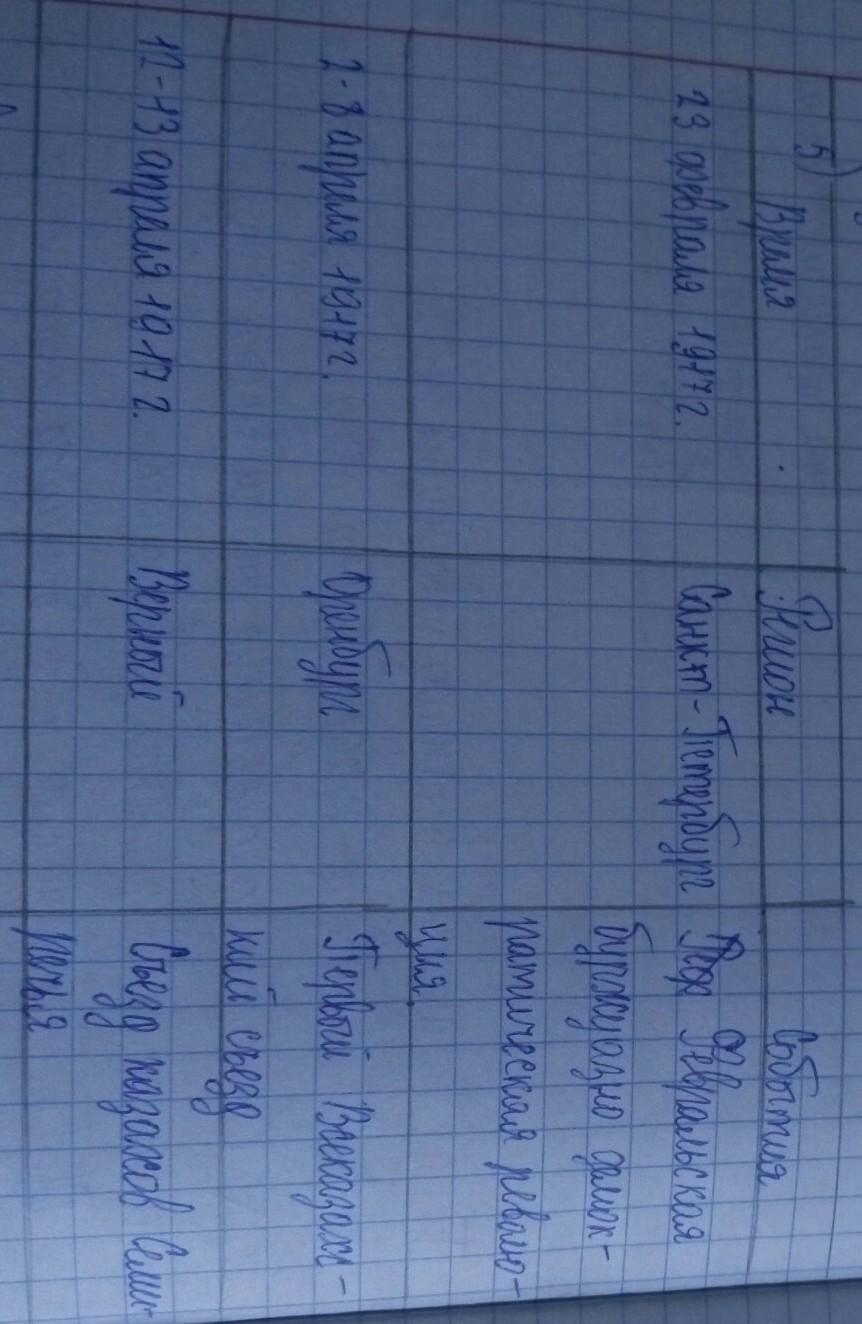 5) Время Регион События
23 февраля 1917 г. Санкт-Петербург Февральская
буржуазно демок-
ратическая револю-
ция.
2-8 апреля 1917 г. Оренбург Первый Всеказахс-
кий съезд
12-13 апреля 1917 г. Верный Съезд казахов Семи-
речья